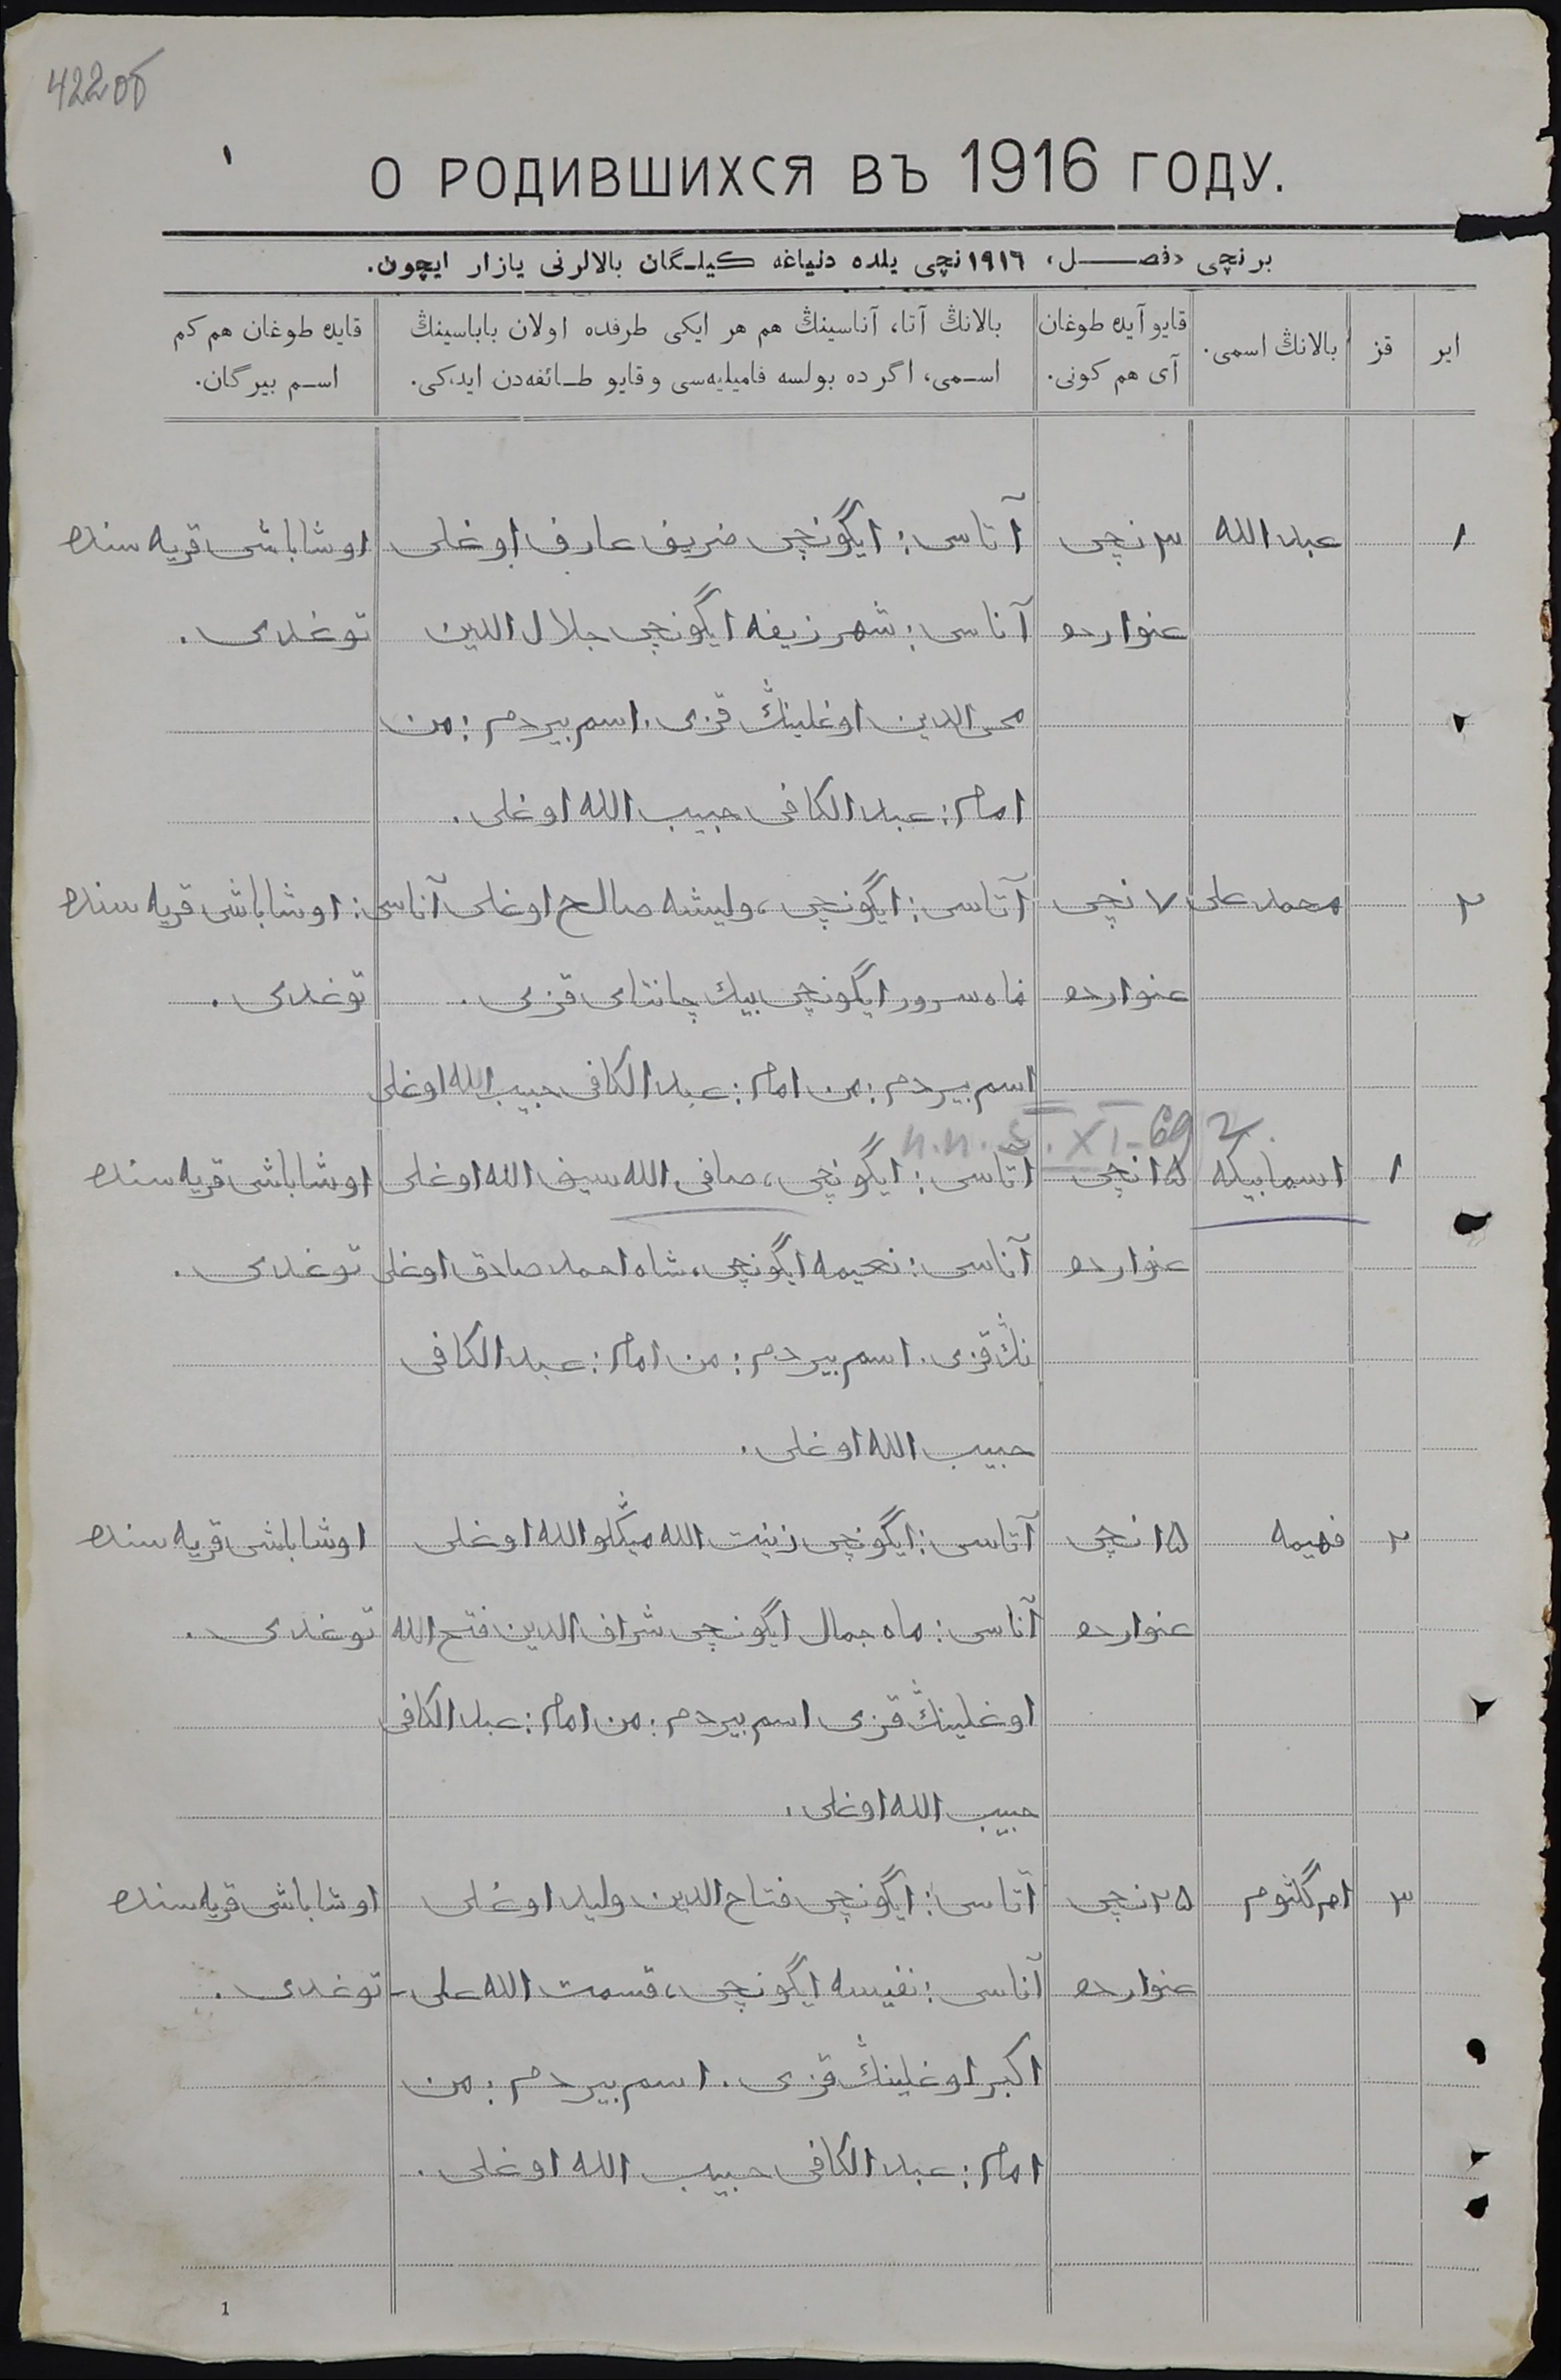 422 об
О РОДИВШИХСЯ ВЪ 1916 ГОДУ.
برنچی «فصل» ١٩١٦نچی یلده دنیاغه کیلگان بالالرنی یازار ایچون.
ایر
قز
بالانڭ اسمی.
قایو آیده طوغان
آی هم کونی.
بالانڭ آتا، آناسینڭ هم هر ایکی طرفده اولان باباسینڭ
اسمی، اگر ده بولسه فامیلیه‌سی و قایو طائفه‌دن ایدکی.
قایده طوغان هم کم
اسم بیرگان.
١ عبد الله ٣نچی آتاسی: ایگونچی ضریف عارف اوغلی اوشاباشی قریه سنده
عنوارده آناسی: شهر زیفه ایگونچی جلال الدین توغدی.
محی الدین اوغلینڭ قزی. اسم بیردم: من
امام: عبد الکافی حبیب الله اوغلی.
٢ محمد علی ٧نچی آتاسی: ایگونچی، ولیشه صالح اوغلی آناسی: اوشاباشی قریه سنده
عنوارده ماه سرور ایگونچی بیك چانتای قزی. توغدی.
اسم بیردم: من امام: عبد الکافی حبیب الله اوغلی
п.п. 5. XI-69 г.
١ اسمابیکه ١٥نچی آتاسی: ایگونچی، صافی الله سیف الله اوغلی اوشاباشی قریه سنده
عنوارده آناسی: نعیمه ایگونچی، شاه احمد صادق اوغلی توغدی.
نڭ قزی. اسم بیردم: من امام: عبد الکافی
حبیب الله اوغلی.
٢ فهیمه ١٥نچی آتاسی: ایگونچی زینت الله میڭلو الله اوغلی اوشاباشی قریه سنده
عنوارده آناسی: ماه جمال ایگونچی شراف الدین فتح الله توغدی.
اوغلینڭ قزی اسم بیردم: من امام: عبد الکافی
حبیب الله اوغلی.
٣ ام گلثوم ٢٥نچی آتاسی: ایگونچی فتاح الدین ولید اوغلی اوشاباشی قریه سنده
عنوارده آناسی: نفیسه ایگونچی، قسمت الله علی- توغدی.
اکبر اوغلینڭ قزی. اسم بیردم: من
امام: عبد الکافی حبیب الله اوغلی.
1